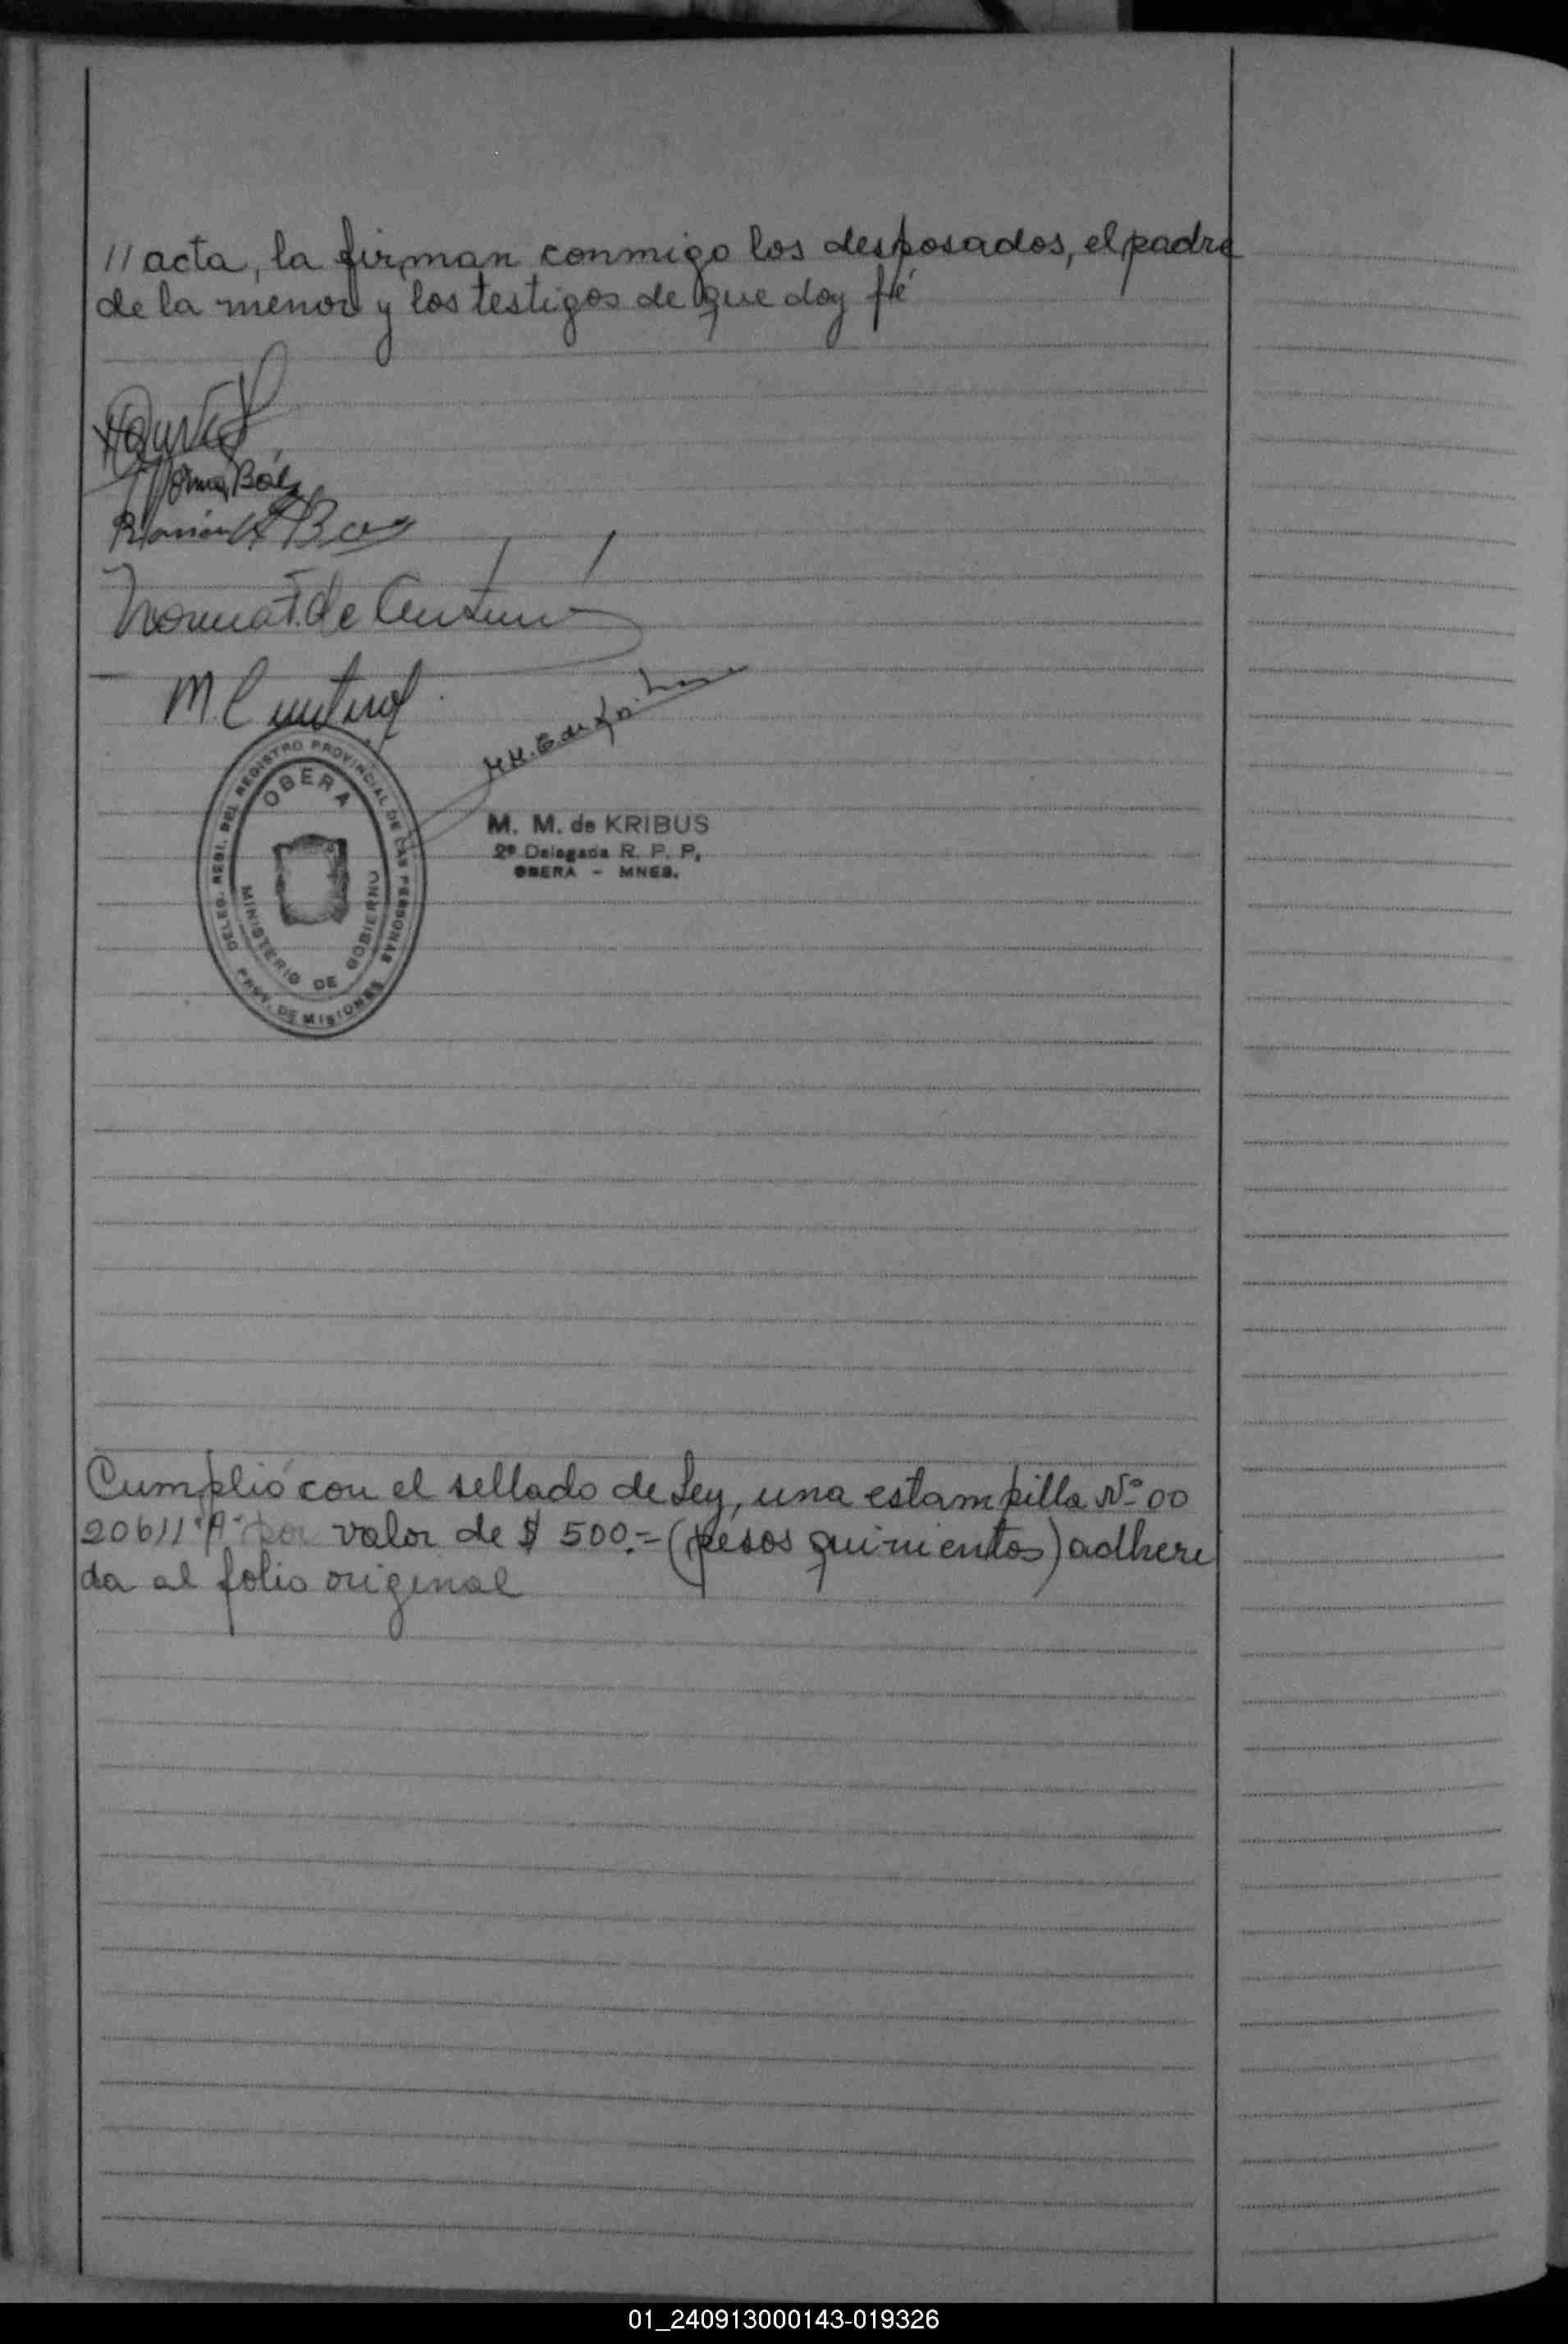 // acta, la firman conmigo los desposados, el padre
de la menor y los testigos de que doy fé
Norma Báez
Ramón Báez
Norma T. de
M.
DELEG. REGI. DEL REGISTRO PROVINCIAL DE LAS PERSONAS
OBERA
MINISTERIO DE GOBIERNO
PROV. DE MISIONES
M. M. de KRIBUS
2º Delegada R. P. P.
OBERA - MNES.
Cumplió con el sellado de Ley, una estampilla Nº 00
20611 "A" por valor de $ 500.= (pesos quinientos) adheri
da al folio original
01_240913000143-019326